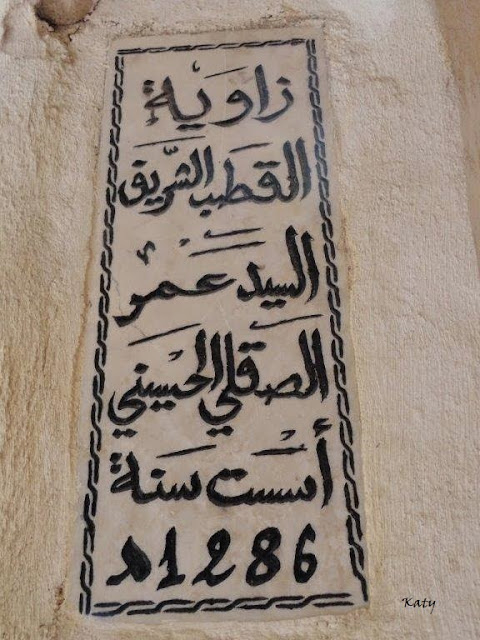 زاوية
القطب الشريف
السيد عمر
الصقلي الحسيني
أسست سنة
1286 ه
Katy